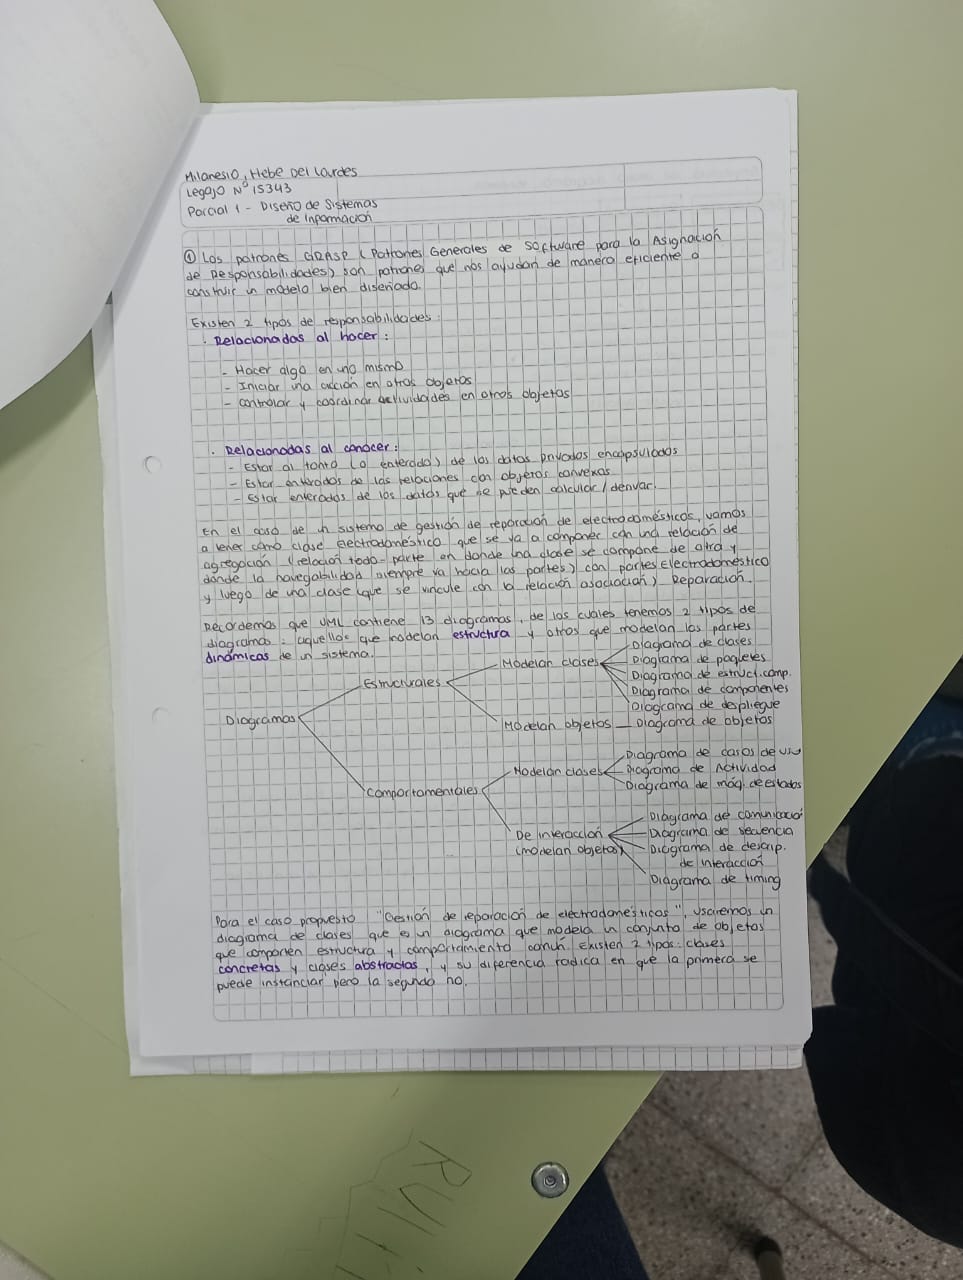 Milanesio, Hebe Del Lourdes
Legajo N° 15343
Parcial 1 - Diseño de Sistemas
de Información
① Los patrones GRASP (Patrones Generales de Software para la Asignación
de Responsabilidades) son patrones que nos ayudan de manera eficiente a
construir un modelo bien diseñado.
Existen 2 tipos de responsabilidades:
. Relacionadas al hacer:
- Hacer algo en uno mismo
- Iniciar una acción en otros objetos
- Controlar y coordinar actividades en otros objetos
. Relacionadas al conocer:
- Estar al tanto (o enterado) de los datos privados encapsulados
- Estar enterados de las relaciones con objetos convexas
- Estar enterados de los datos que se pueden calcular/derivar.
En el caso de un sistema de gestión de reparación de electrodomésticos, vamos
a tener como clase Electrodoméstico que se va a componer con una relación de
agregación (relación todo-parte en donde una clase se compone de otra y
donde la navegabilidad siempre va hacia las partes) con partesElectrodoméstico
y luego de una clase (que se vincule con la relación asociación) Reparación.
Recordemos que UML contiene 13 diagramas, de los cuales tenemos 2 tipos de
diagramas: aquellos que modelan estructura y otros que modelan las partes
dinámicas de un sistema.
Diagramas
Estructurales
Modelan clases
Diagrama de clases
Diagrama de paquetes
Diagrama de estruct.comp.
Diagrama de componentes
Diagrama de despliegue
Modelan objetos
Diagrama de objetos
Comportamentales
Modelan clases
Diagrama de casos de uso
Diagrama de Actividad
Diagrama de máq. de estados
De interacción
(modelan objetos)
Diagrama de comunicació
Diagrama de secuencia
Diagrama de descrip.
de interacción
Diagrama de timing
Para el caso propuesto "Gestión de reparación de electrodomésticos", usaremos un
diagrama de clases que es un diagrama que modela un conjunto de objetos
que comparten estructura y comportamiento común. Existen 2 tipos: clases
concretas y clases abstractas, y su diferencia radica en que la primera se
puede instanciar pero la segunda no.